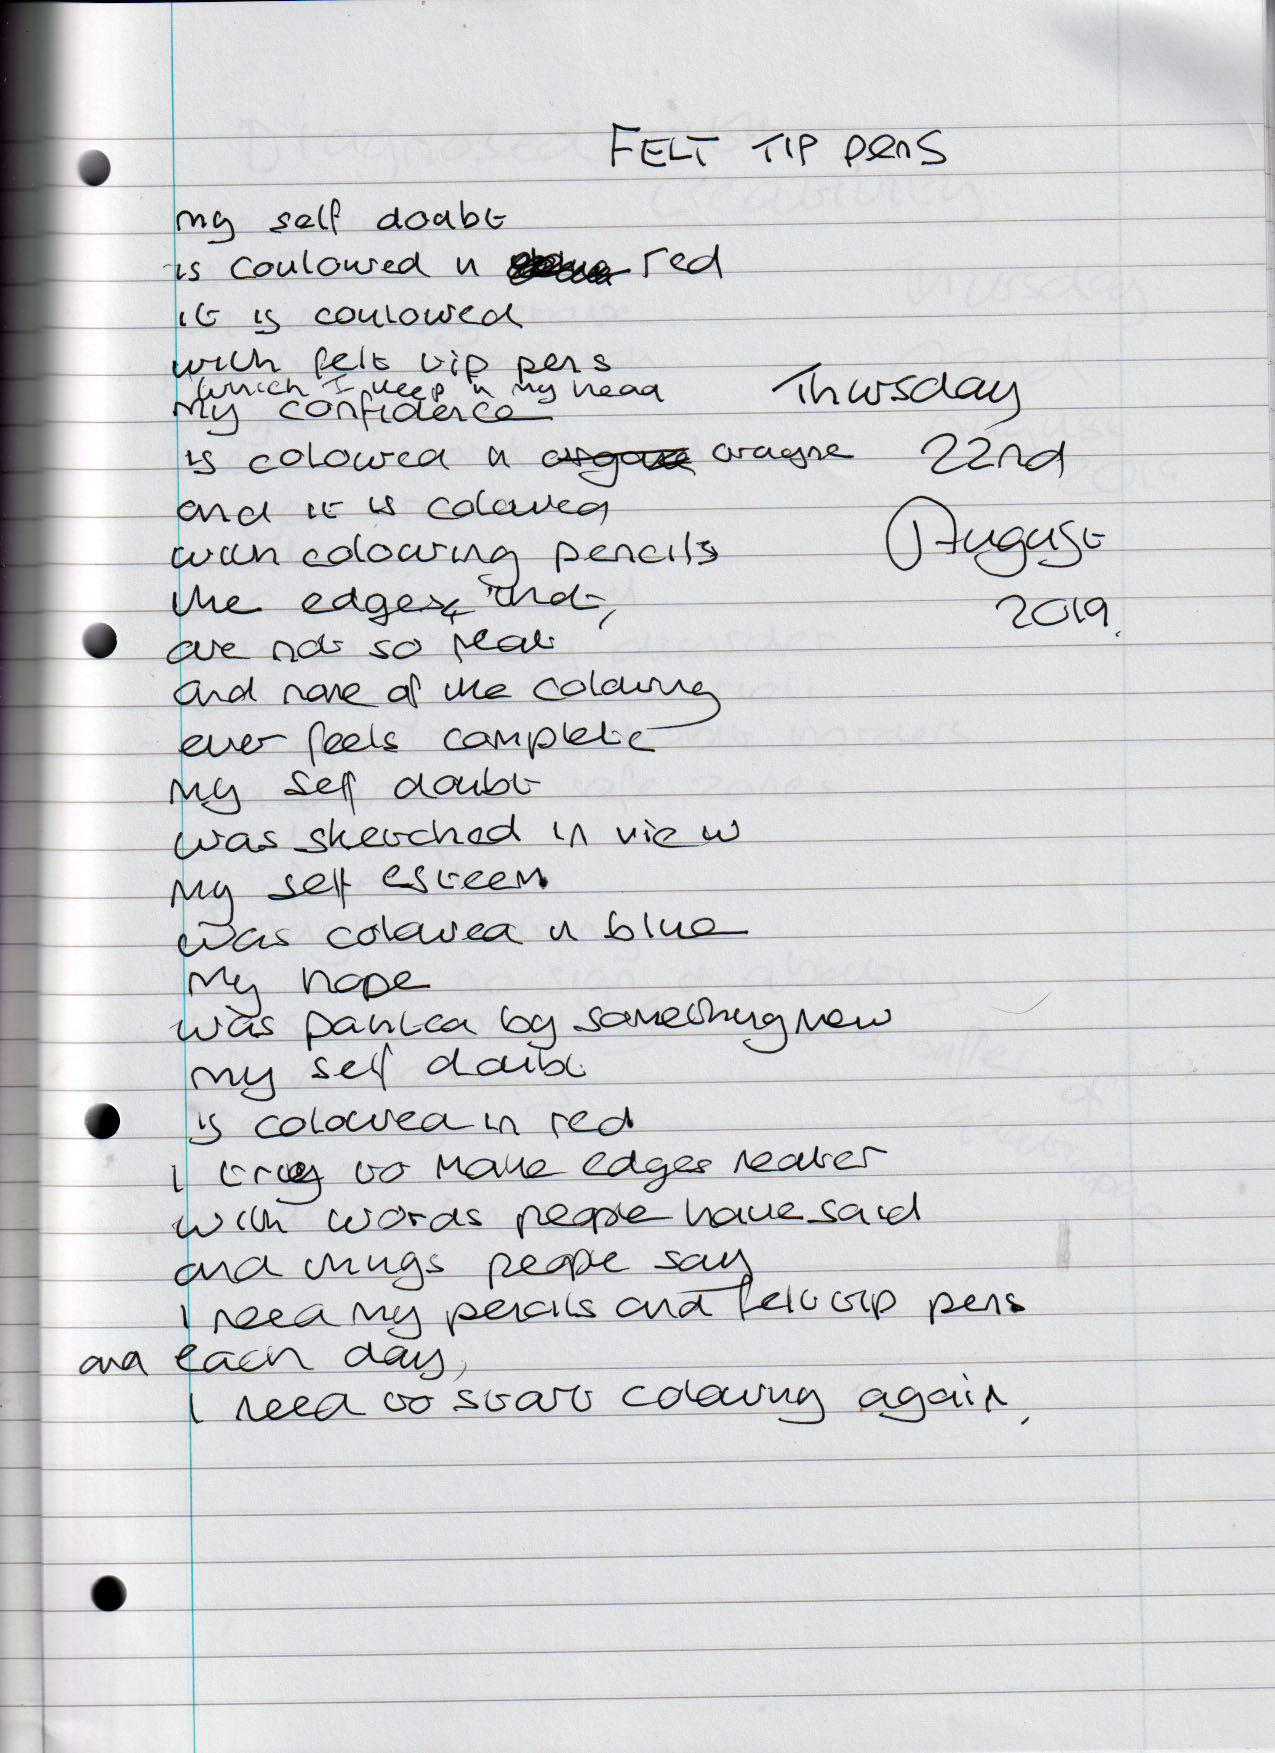 FELT TIP PENS
my self doubt
is couloured in red
it is couloured
with felt tip pens
which I keep in my head
My confidence
is coloured in oragne
and it is coloured
with colouring pencils
the edges, that,
are not so neat
and none of the colouring
ever feels complete
My self doubt
was sketched in view
My self esteem
was coloured in blue
My hope
was painted by something new
my self doubt
is coloured in red
I try to make edges neater
with words people have said
and things people say
I need my pencils and felt tip pens
and each day,
I need to start colouring again.
Thursday
22nd
August
2019.